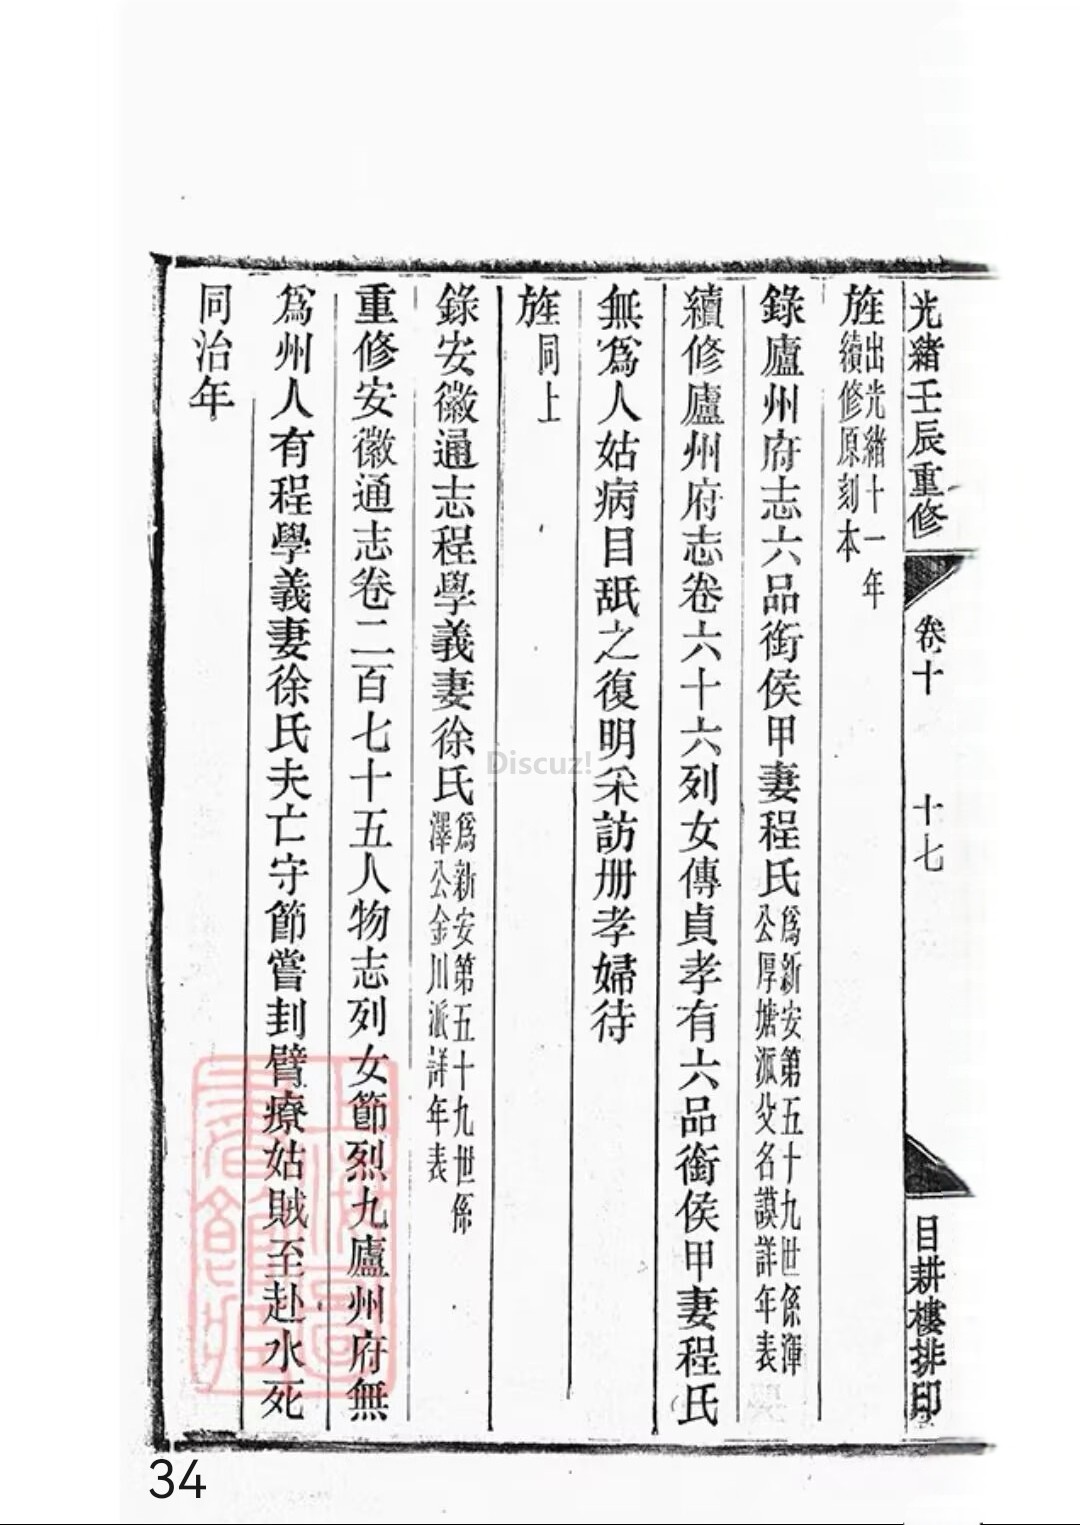 光緒壬辰重修
卷十
十七
目耕樓排印
旌出光緒十一年
續修原刻本
錄廬州府志六品銜侯甲妻程氏爲新安第五十九世係渾
公厚塘派父名謨詳年表
續修廬州府志卷六十六列女傳貞孝有六品銜侯甲妻程氏
無爲人姑病目舐之復明采訪册孝婦待
旌同上
錄安徽通志程學義妻徐氏爲新安第五十九世係
澤公金川派詳年表
重修安徽通志卷二百七十五人物志列女節烈九廬州府無
爲州人有程學義妻徐氏夫亡守節嘗刲臂療姑賊至赴水死
同治年
Discuz!
34